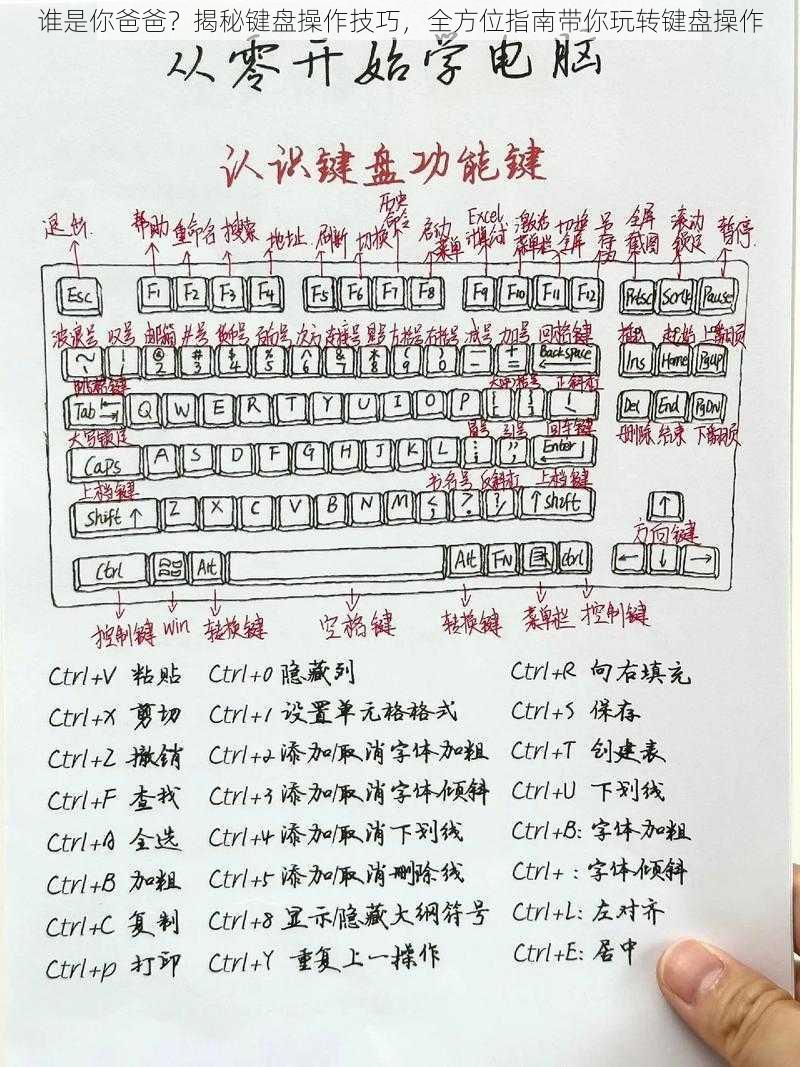 谁是你爸爸？揭秘键盘操作技巧，全方位指南带你玩转键盘操作
从零开始学电脑
认识键盘功能键
退出 帮助 重命名 搜索 地址 刷新 切换 历史命令 启动菜单 Excel计算公式 激活菜单栏 切换全屏 另存为 全屏截图 滚动锁定 暂停
Esc F1 F2 F3 F4 F5 F6 F7 F8 F9 F10 F11 F12 Prtsc Scrlk Pause
波浪号 叹号 邮箱 井号 货币号 百分号 次方 连接号 星号 左括号 右括号 减号 加号 回格键 插入 起始 上翻页
~ ! @ 2 # 3 $ 4 % 5 ^ 6 & 7 * 8 ( 9 ) 0 — + = Backspace Ins Home PgUp
制表键 大中括号 正斜杠
Tab Q W E R T Y U I O P Del End PgDn
大写锁定 冒号 引号 回车键 删除 结束 下翻页
Caps A S D F G H J K L Enter
上档键 书名号 反斜杠 上档键
Shift ↑ Z X C V B N M ↑ Shift ↑
方向键
Ctrl Alt Alt FN ctrl ← ↓ →
控制键 win 转换键 空格键 转换键 菜单栏 控制键
Ctrl+V 粘贴 Ctrl+0 隐藏列 Ctrl+R 向右填充
Ctrl+X 剪切 Ctrl+1 设置单元格格式 Ctrl+S 保存
Ctrl+Z 撤销 Ctrl+2 添加/取消字体加粗 Ctrl+T 创建表
Ctrl+F 查找 Ctrl+3 添加/取消字体倾斜 Ctrl+U 下划线
Ctrl+A 全选 Ctrl+4 添加/取消下划线 Ctrl+B: 字体加粗
Ctrl+B 加粗 Ctrl+5 添加/取消删除线 Ctrl+ : 字体倾斜
Ctrl+C 复制 Ctrl+8 显示/隐藏大纲符号 Ctrl+L: 左对齐
Ctrl+p 打印 Ctrl+Y 重复上一操作 Ctrl+E: 居中